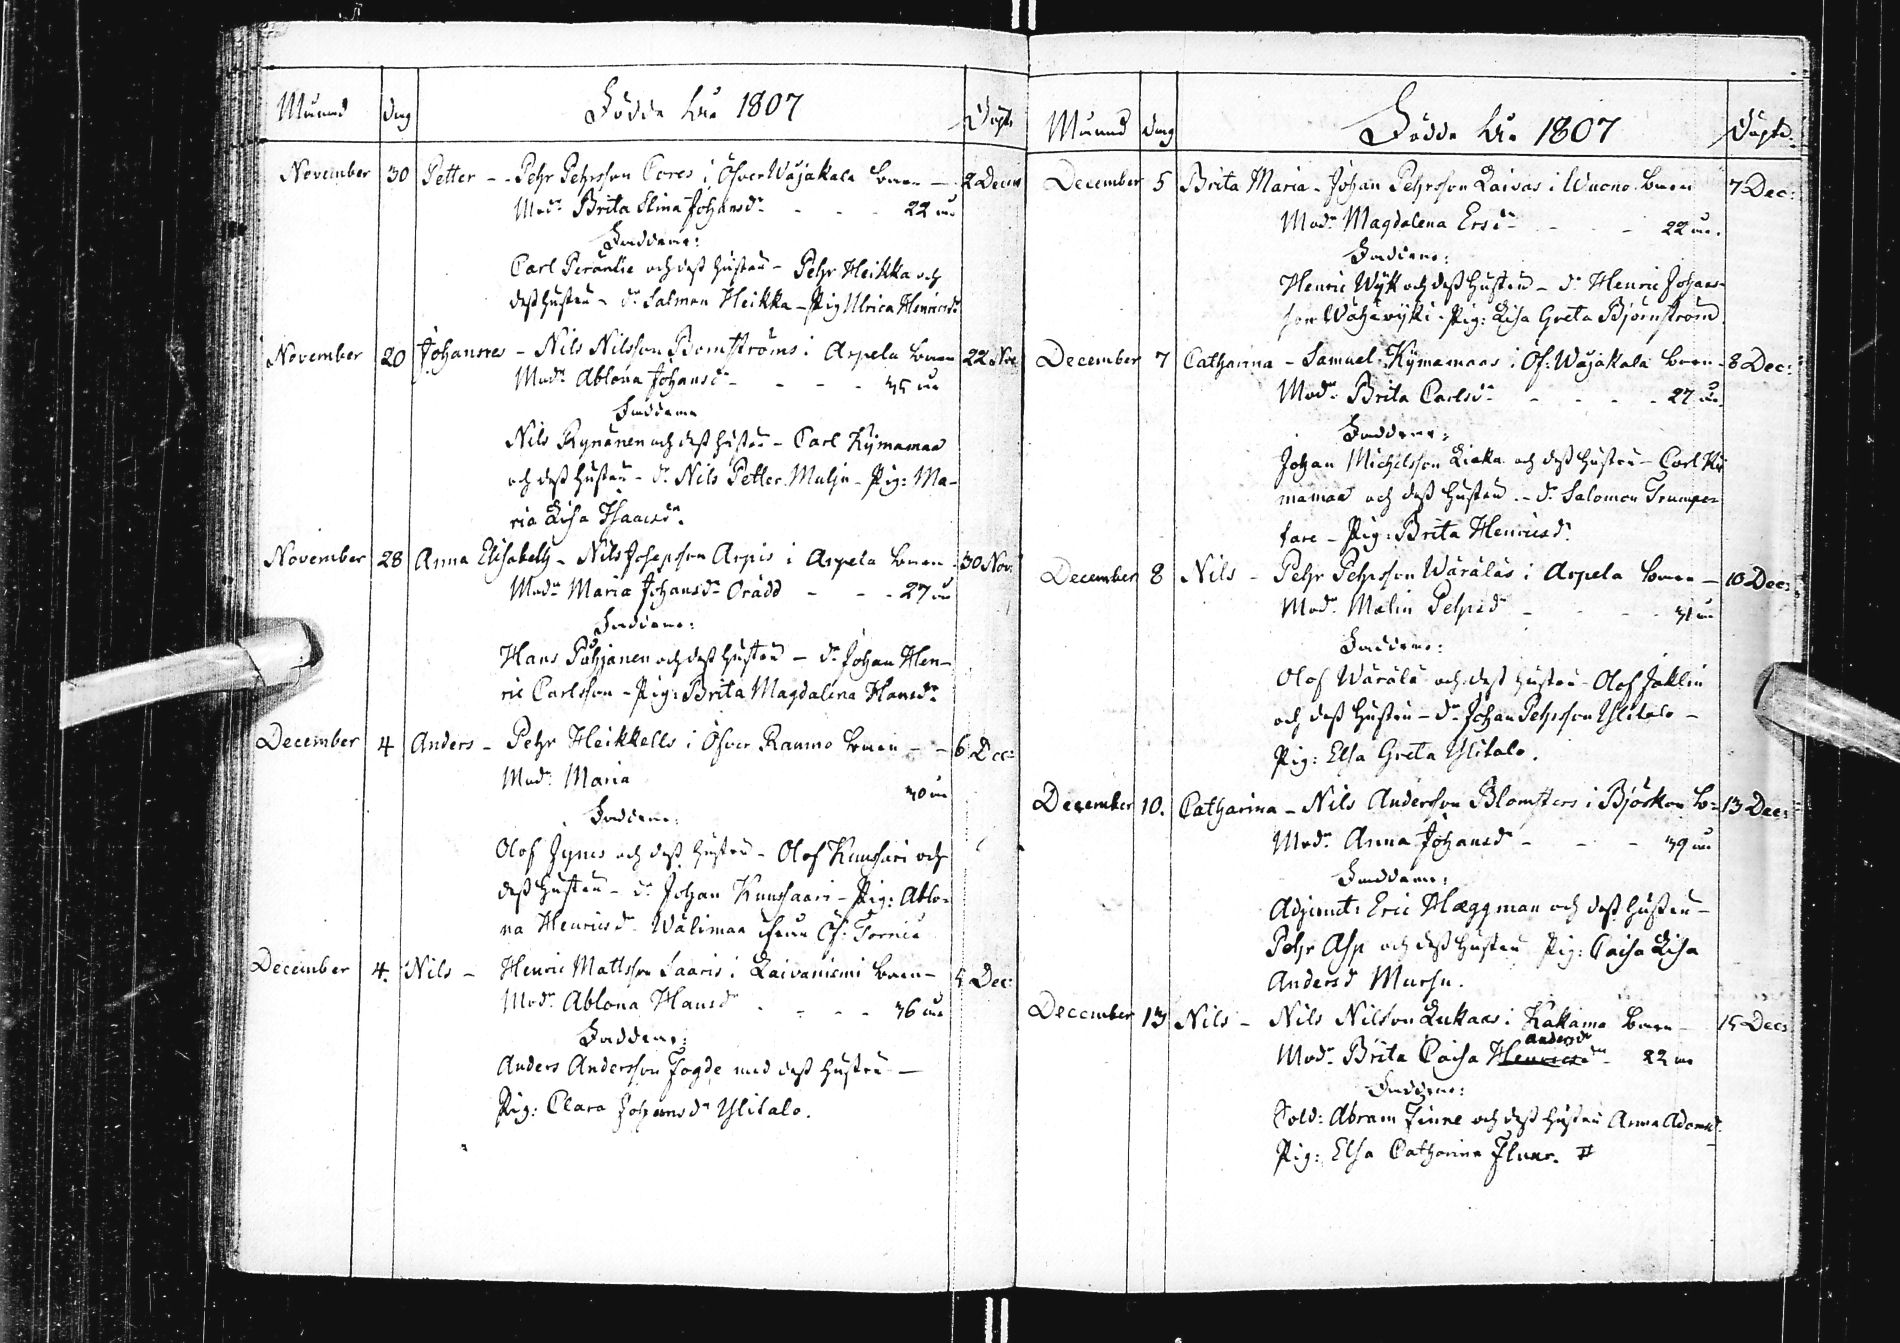 Månad dag Födde År 1807 Döpte
November 30 Petter - - Pehr Pehrsson Cores i ÖfverWäjakala barn - 2 Decem
Mod:r Brita Stina Johansd:r - - - 22 år
Faddrar:
Carl Perántie och dess hustru - Pehr Heikka och
dess hustru - d:r Salmon Heikka - Pig Ulrica Henricsd:r
November 20 Johannes - Nils Nilsson Bomströms i Arpela barn 22 Nov
Mod:r Ablona Johansd:r - - - - 35 år
Faddrar
Nils Rynänen och dess hustru - Carl Kymamaa
och dess hustru - d:r Nils Petter Mulju - Pig: Ma-
ria Lisa Isaacsd:r
November 28 Anna Elisabeth - Nils Josephson Arpis i Arpela barn - 30 Nov:
Mod:r Maria Johansd:r Orädd - - - 27 år
Faddrar:
Hans Pohjanen och dess hustru - d:r Johan Hen-
ric Carlsson - Pig: Brita Magdalena Hansd:r
December 4 Anders - Pehr Heikkells i Öfver Raumo barn - - 6 Dec:
Mod:r Maria 30 år
Faddrar:
Olof och dess hustru - Olof Kunsari och
dess hustru - d:r Johan Kunsaari - Pig: Ablo-
na Henricsd:r Wälimaa ifrån Öf: Torneå
December 4. Nils - Henric Mattsson Saaris i Laivaniemi barn - 5 Dec:
Mod:r Ablona Hansd:r - - - - 36 år
Faddrar:
Anders Andersson Fogde med dess hustru -
Pig: Clara Johansd:r Ylitalo.
Månad dag Födde År 1807 Döpte
December 5 Brita Maria - Johan Pehrsson Laivas i Wuono barn 7 Dec:
Mod:r Magdalena Ersd:r - - - 22 år.
Faddrar:
Henric Wyk och dess hustru - d:r Henric Johans-
son Wähäwyki - Pig: Lisa Greta Björnström
December 7 Catharina - Samuel Kymamaas i Öf: Wäjakala barn - 8 Dec:
Mod:r Brita Carlsd:r - - - - 27 år
Faddrar:
Johan Michelsson Liaka och dess hustru - Carl Ky
mamaa och dess hustru - d:r Salomon Trumpe-
tare - Pig: Brita Henricsd:r
December 8 Nils - Pehr Pehrsson Wäräläs i Arpela barn - 10 Dec:
Mod:r Malin Pehrsd:r - - - - 31 år
Faddrar:
Olof Wärälä och dess hustru - Olof Jaklin
och dess hustru - d:r Johan Pehrsson Ylitalo -
Pig: Elsa Greta Ylitalo.
December 10. Catharina - Nils Andersson Blomsters i Björkön b: 13 Dec:
Mod:r Anna Johansd:r - - - 39 år
Faddrar:
Adjunct: Eric Hæggman och dess hustru -
Pehr Asp och dess hustru Pig: Caisa Lisa
Andersd:r Mursu.
December 13 Nils - Nils Nilsson Lukaas i Kakamo barn - 15 Dec:
Andersd:r
Mod:r Brita Caisa Henricsd:r - 22 år
Faddrar:
Sold: Abram Finne och dess hustru Anna Adamsd:r
Pig: Elsa Catharina